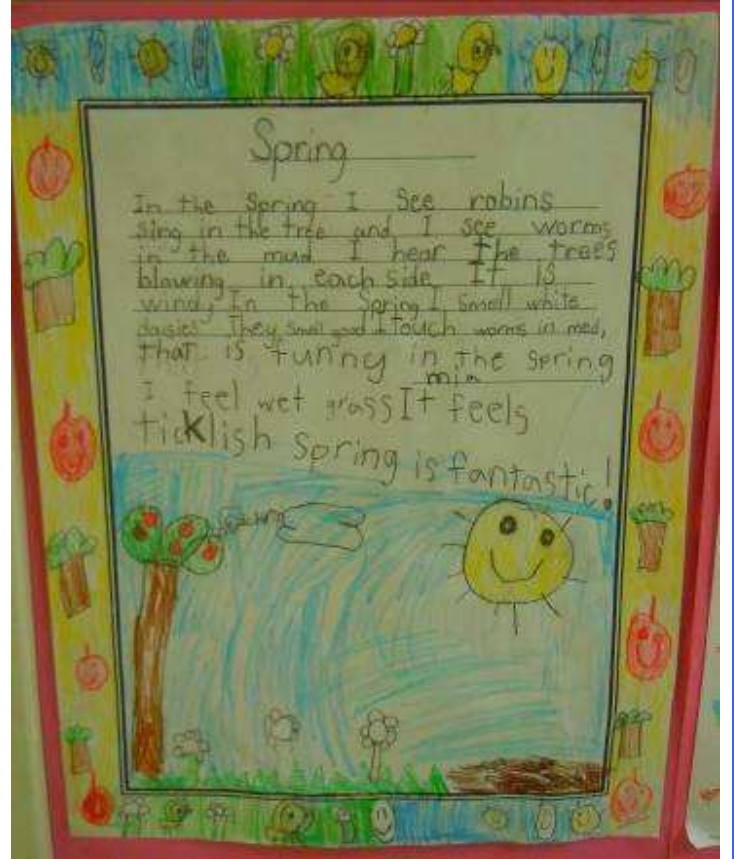 Spring
In the Spring I See robins
sing in the tree and I see worms
in the mud I hear the trees
blowing in each side It is
windy In the Spring I smell white
daisies They smell good I touch worms in med,
that is funny in the spring
mia
I feel wet grass It feels
ticklish spring is fantastic!